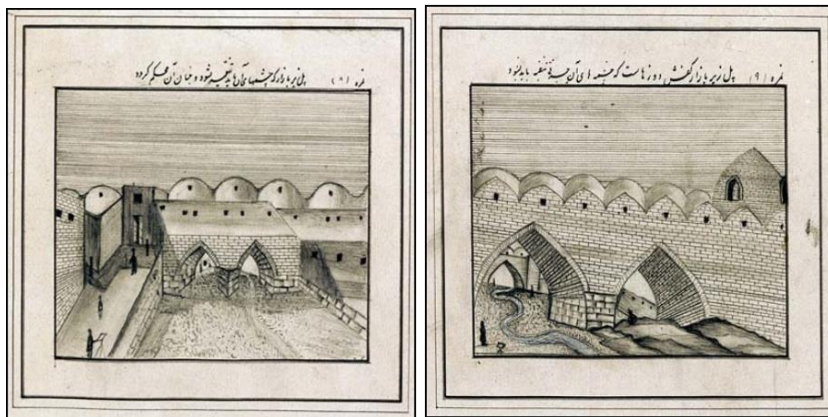 نمره (۸) پل زیر بازار که چشمهای آن باید تنقیه شود و بنیان آن محکم گردد
نمره (۹) پل زیر بازار کفش دوزها است که چشمه ای آن تنقیه باید بشود